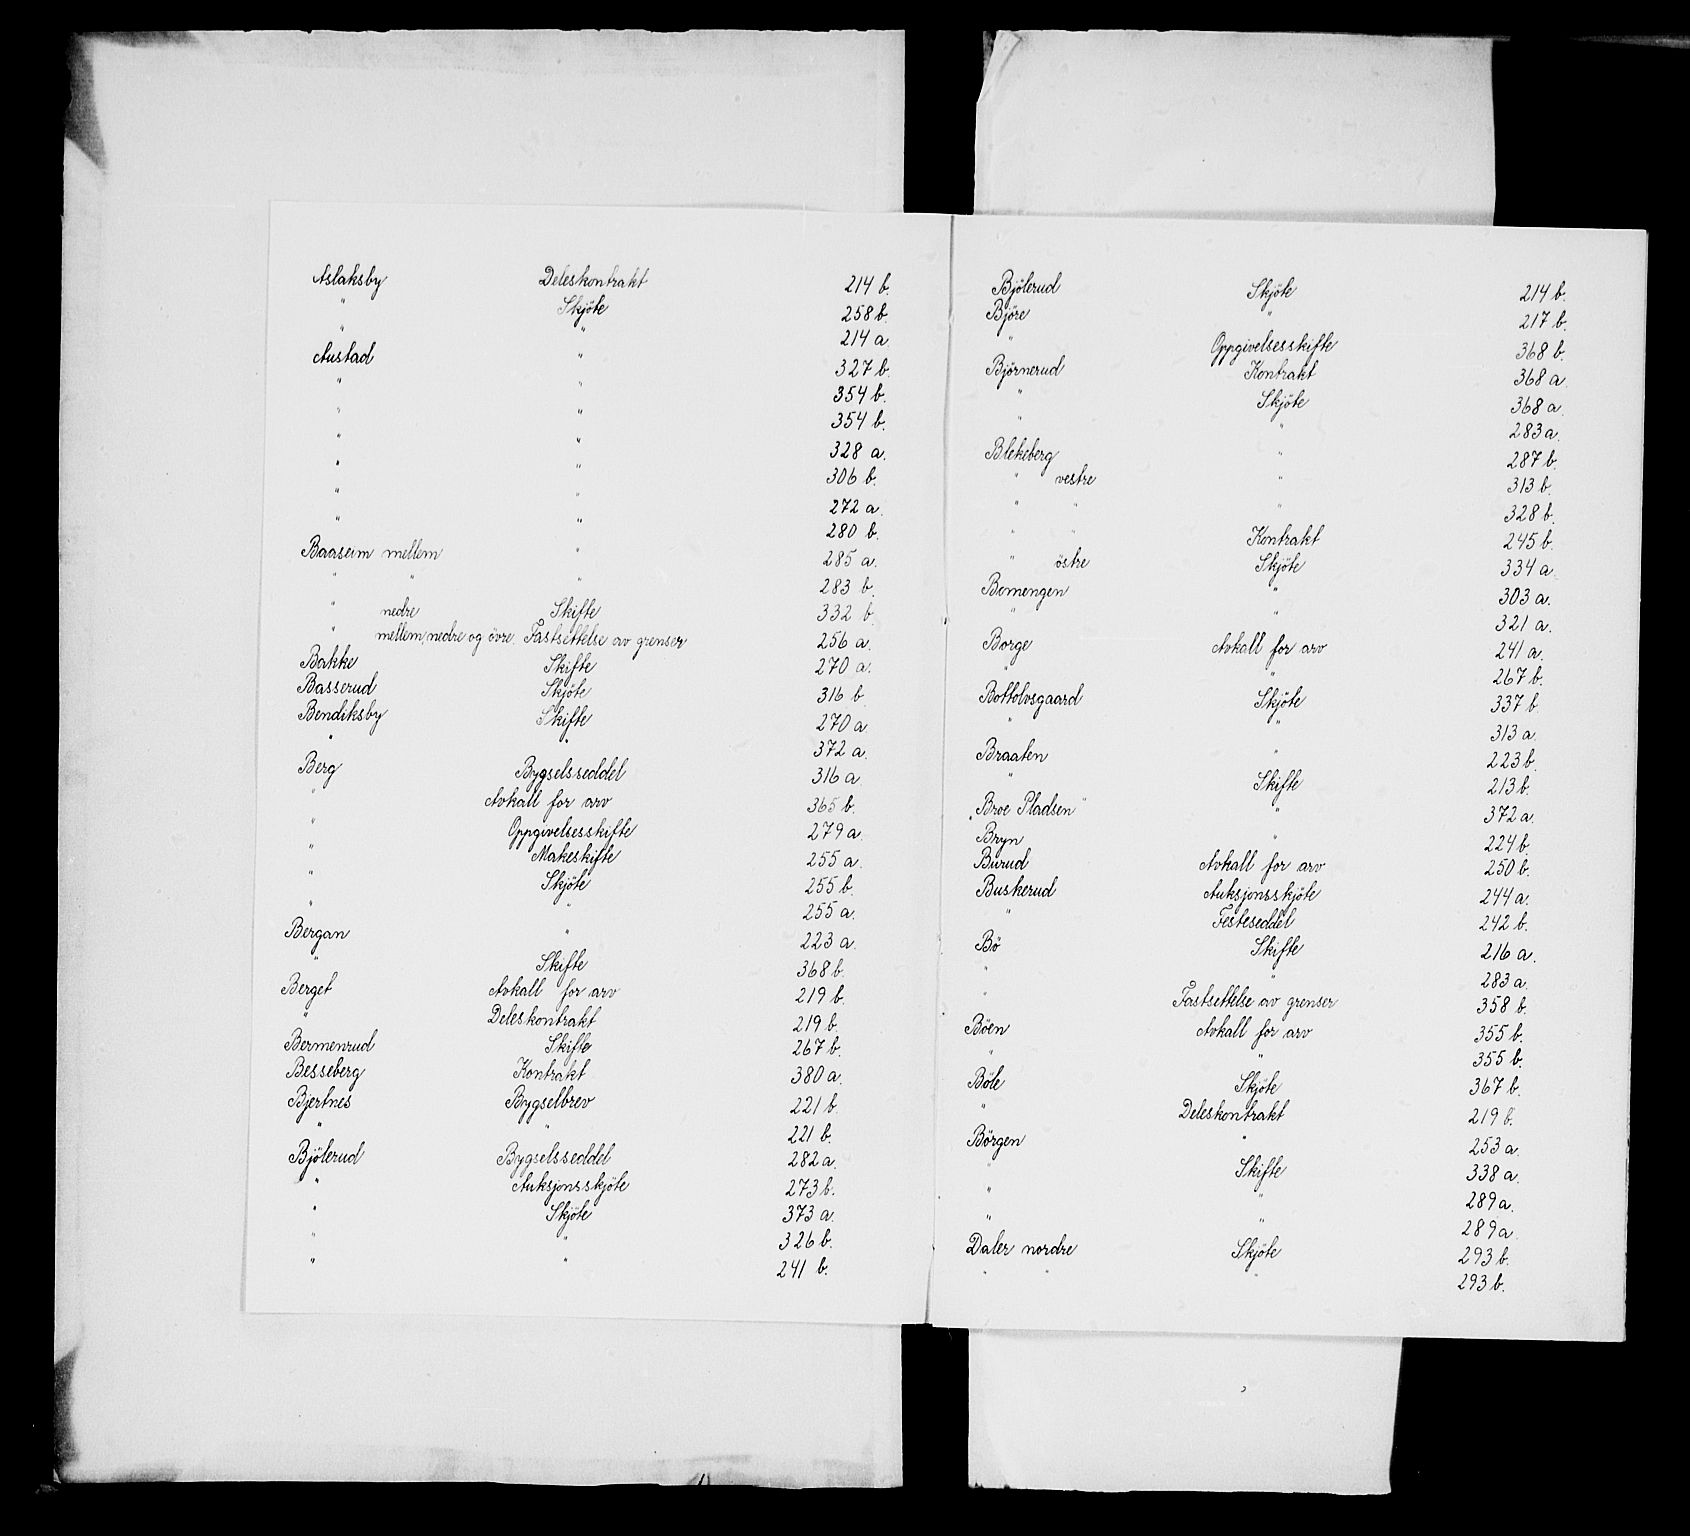 Aslaksby Deleskontrakt 214 b.
" Skjöte 258 b.
" " 214 a
Austad " 327 b.
" " 354 b.
" " 354 b.
" " 328 a.
" " 306 b.
" " 272 a.
" " 280 b.
Baaseim mellem " 285 a.
" " " 283 b.
" nedre Skifte 332 b.
" mellem, nedre og övre. Fastsettelse av grenser 256 a.
Bakke Skifte 270 a.
Basserud Skjöte 316 b
Bendiksby Skifte 270 a
" " 372 a.
Berg Bygselsseddel 316 a
" Avkall for arv 365 b.
" Oppgivelsesskifte 279 a.
" Makeskifte 255 a.
" Skjöte 255 b.
" " 255 a.
Bergan " 223 a.
" Skifte 368 b.
Berget Avkall for arv 219 b.
" Deleskontrakt 219 b.
Bermenrud Skifte 267 b.
Besseberg Kontrakt 380 a.
Bjertnes Bygselbrev 221 b.
" " 221 b.
Bjölerud Bygselsseddel 282 a.
" Auksjonsskjöte 273 b.
" Skjöte 373 a.
" " 326 b.
" " 241 b.
Bjölerud Skjöte 214 b.
Björe " 217 b.
" Oppgivelsesskifte 368 b.
Björnerud Kontrakt 368 a.
" Skjöte 368 a.
" " 283 a.
Blekeberg " 287 b.
" vestre " 313 b.
" " " 328 b.
" " Kontrakt 245 b.
" östre Skjöte 334 a.
Bomengen " 303 a.
" " 321 a.
Borge Avkall for arv 241 a.
" " 267 b.
Bottolvsgaard Skjöte 337 b.
" " 313 a.
Braaten " 223 b.
" Skifte 213 b.
"Broe Pladsen" " 372 a.
Bryn " 224 b.
Burud Avkall for arv 250 b.
Buskerud Auksjonsskjöte 244 a.
" Festeseddel 242 b.
Bö Skifte 216 a.
" " 283 a.
" Fastsettelse av grenser 358 b.
Böen Avkall for arv 355 b.
" " 355 b.
Böle Skjöte 367 b.
" Deleskontrakt 219 b.
Börgen " 253 a.
" Skifte 338 a.
" " 289 a.
" " 289 a.
Daler nordre Skjöte 293 b.
" " " 293 b.